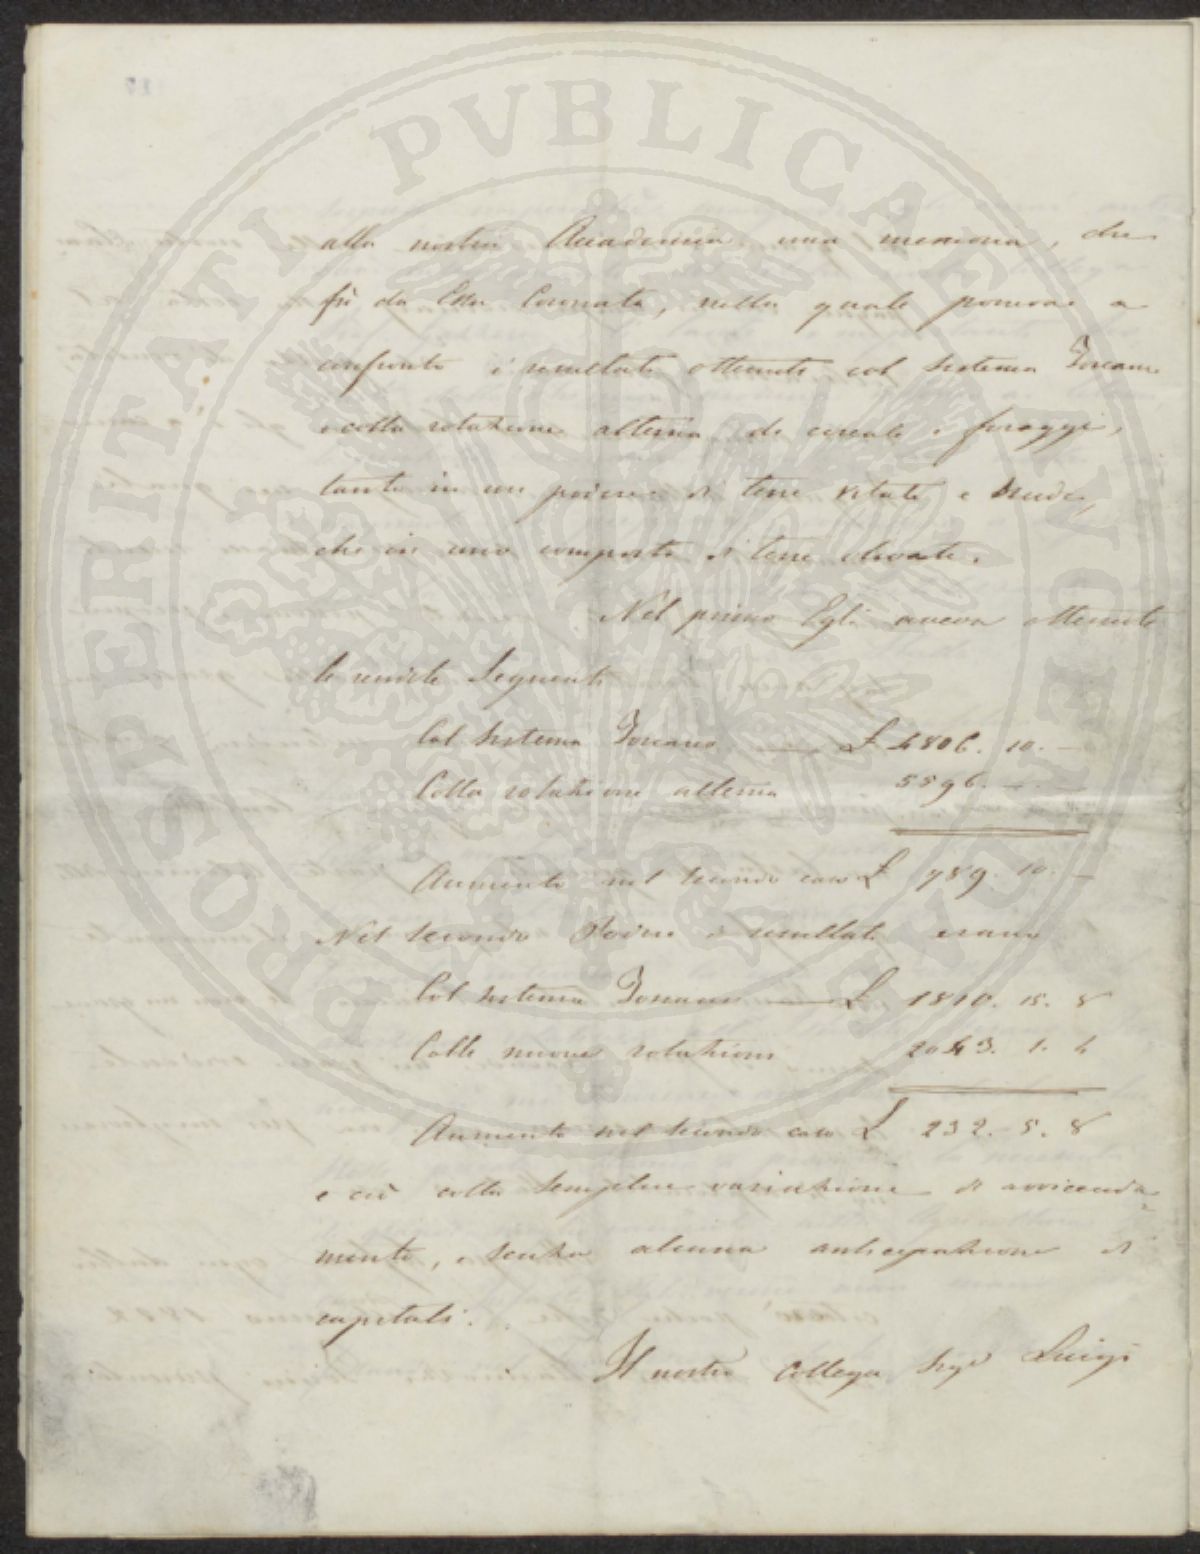 PROSPERITATI PVBLICAE AVGENDAE
alla nostra Accademia una memoria, che
fù da Essa Coronata, nella quale poneva a
confronto i resultati ottenuti col sistema Toscano
e colla rotazione alterna di cereali e foraggi,
tanto in un podere di terre vitate e nude,
che in uno composto di terre olivate.
Nel primo Egli aveva ottenuto
le rendite seguenti
Col sistema Toscano £ 4806. 10. —
Colla rotazione alterna 5596. — —
Aumento nel secondo caso £ 789. 10. —
Nel secondo Podere i resultati erano
Col sistema Toscano £ 1810. 15. 8
Colla nuova rotazione 2043. 1. 4
Aumento nel secondo caso £ 232. 5. 8
e ciò colla semplice variazione di avvicenda=
mento, e senza alcuna anticipazione di
capitali.
Il nostro Collega Sigr Luigi